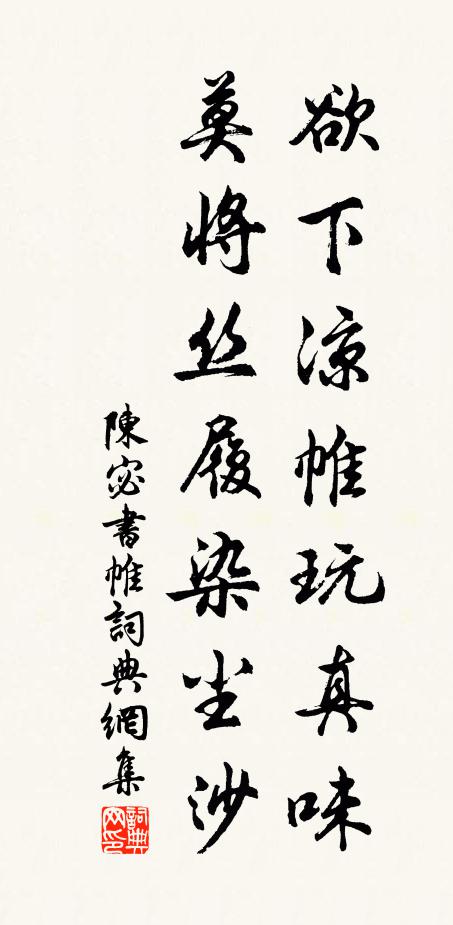 欲下凉帷玩真味
莫将丝履染尘沙
陳宓書帷詞典網集
詞典网印